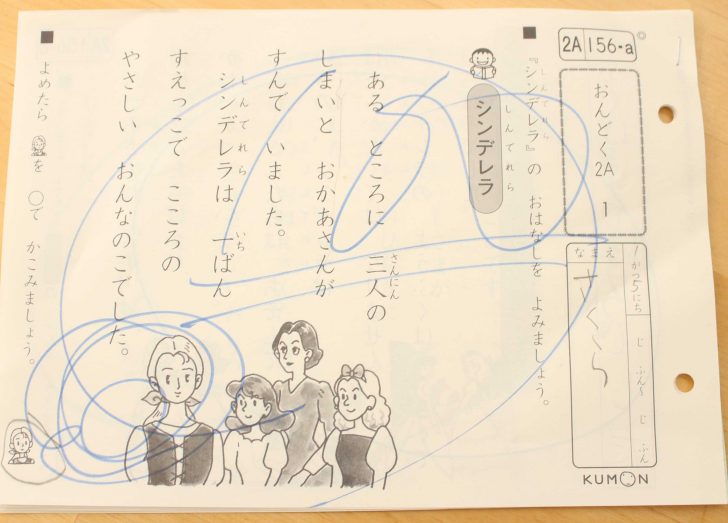 2A 156-a
おんどく
2A
1
なまえ
さくら
1がつ5にち
じ ふん〜 じ ふん
KUMON
■『シンデレラ』の おはなしを よみましょう。
しんでれら
シンデレラ
しんでれら
ある ところに 三人の
さんにん
しまいと おかあさんが
すんで いました。
シンデレラは 一ばん
しんでれら いち
すえっこで こころの
やさしい おんなのこでした。
■よめたら を ○で かこみましょう。
100